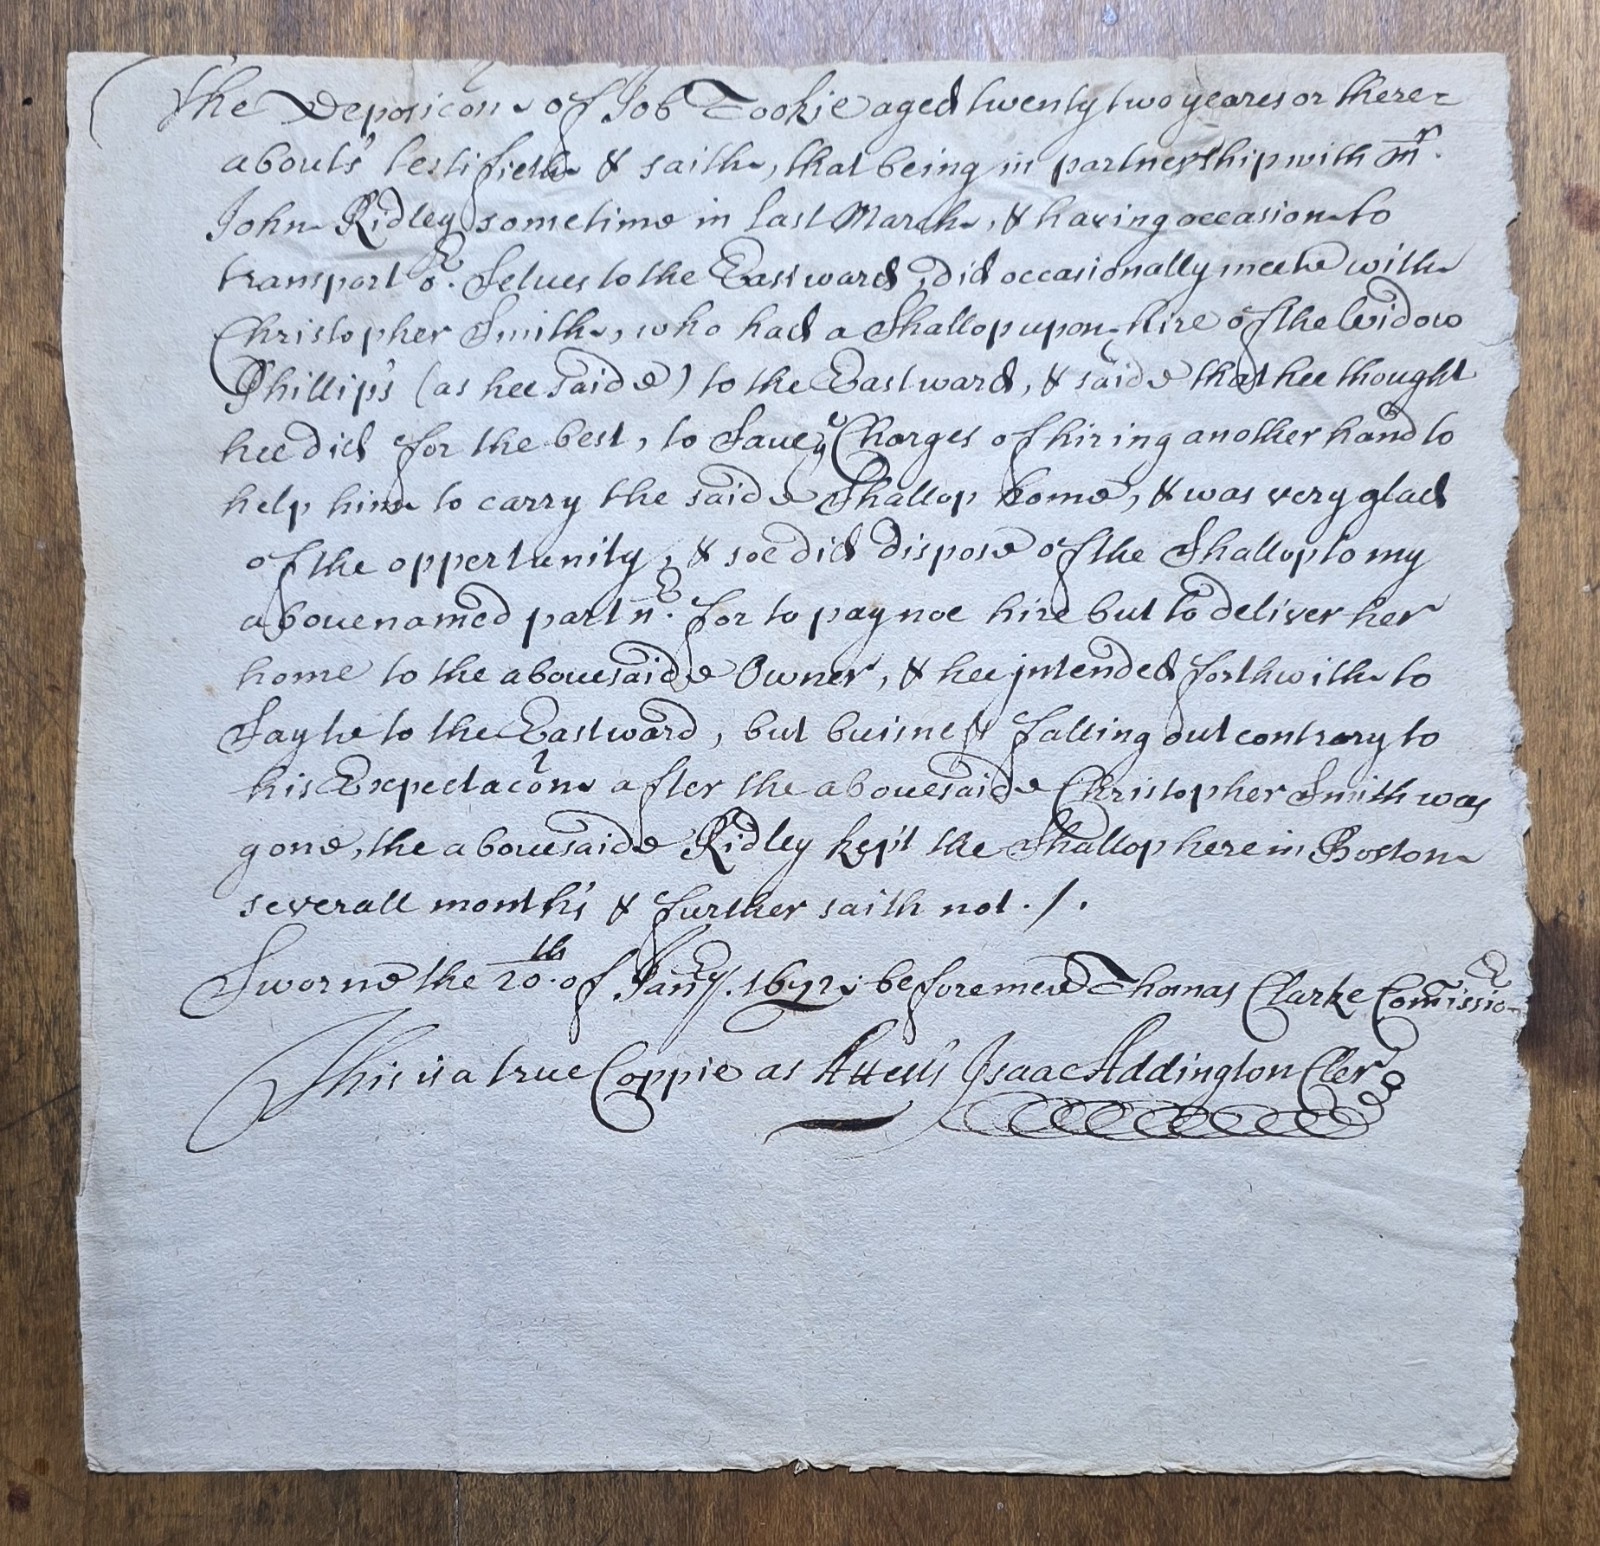 The Deposicon of Job Tookie aged twenty two yeares or there=
abouts testifieth & saith, that being in partnership with mr.
John Ridley sometime in last March, & having occasion to
transport or. Selues to the Eastward, did occasionally meete with
Christopher Smith, who had a Shallop upon hire of the Widow
Phillips (as hee saide) to the Eastward, & saide that hee thought
hee did for the best, to Saue ye Charges of hiring another hand to
help him to carry the saide Shallop home, & was very glad
of the oppertunity, & soe did dispose of the Shallop to my
abouenamed partnr. for to pay noe hire but to deliver her
home to the abouesaide Owner, & hee intended forthwith to
Sayle to the Eastward, but buisness falling out contrary to
his Expectacon after the abouesaide Christopher Smith was
gone, the abouesaide Ridley kept the Shallop here in Boston
severall months & further saith not ./.
Sworne the 20th. of Janry. 1672 before mee Thomas Clarke Comissior
This is a true Coppie as Attests Isaac Addington Cler